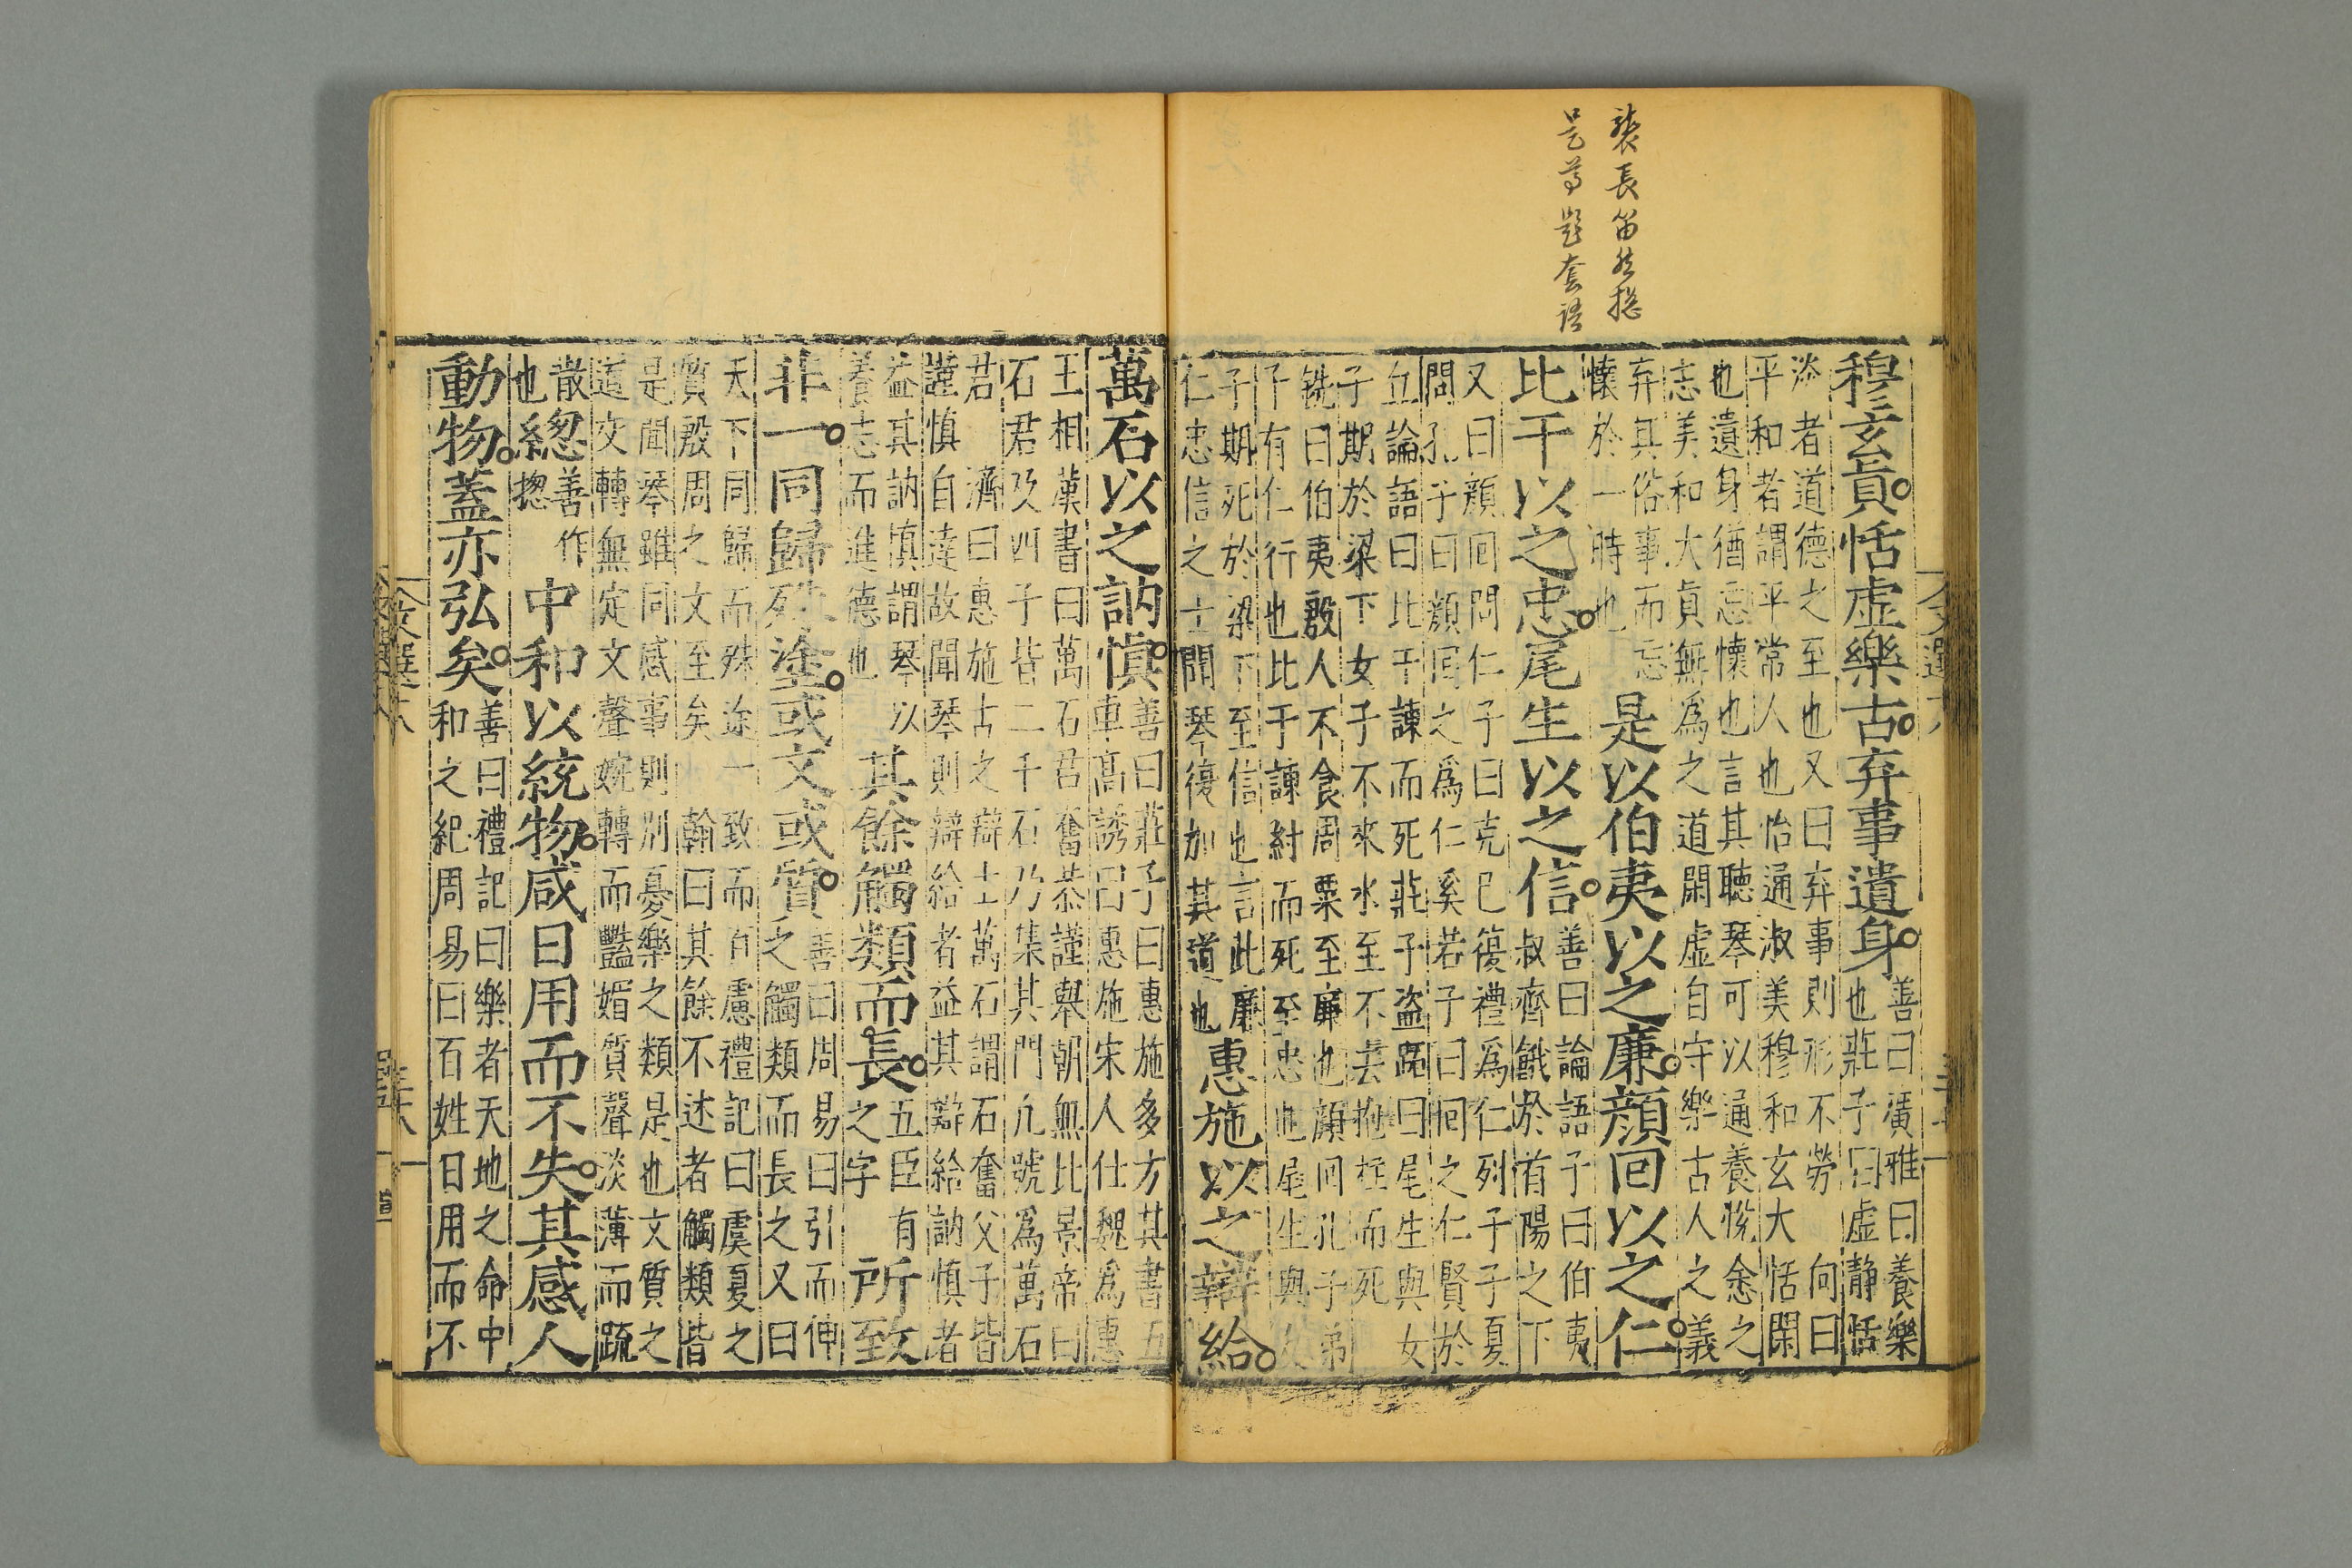 襲長笛然搃
是等題套語
穆玄眞恬虛樂古弃事遺身
善曰廣雅曰養樂
也莊子曰虛静恬
淡者道德之至也又曰弃事則形不勞 向曰
平和者謂平常人也怡通淑美穆和玄大恬閑
也遺身猶忘懷也言其聽琴可以通養悅悆之
志美和大眞無爲之道閑虛自守樂古人之義
弃其俗事而忘
懷於一時也
是以伯夷以之廉顔回以之仁
比干以之忠尾生以之信
善曰論語子曰伯夷
叔齊餓於首陽之下
又曰顔回問仁子曰克己復禮爲仁列子子夏
問孔子曰顔回之爲仁奚若子曰回之仁賢於
丘論語曰比干諫而死莊子盗跖曰尾生與女
子期於梁下女子不來水至不去抱柱而死
銑曰伯夷殷人不食周粟至廉也顔回孔子弟
子有仁行也比干諫紂而死至忠也尾生與女
子期死於梁下至信也言此廉
仁忠信之士聞琴復加其道也
惠施以之辯給
萬石以之訥慎
善曰莊子曰惠施多方其書五
車高誘曰惠施宋人仕魏爲惠
王相漢書曰萬石君奮恭謹舉朝無比景帝曰
石君及四子皆二千石乃集其門凢號爲萬石
君 濟曰惠施古之辯士萬石謂石奮父子皆
謹慎自達故聞琴則辯給者益其辯給訥慎者
益其訥慎謂琴以
養志而進德也
其餘觸類而長
五臣有
之字
所致
非一同歸殊塗或文或質
善曰周易曰引而伸
之觸類而長之又曰
天下同歸而殊途一致而百慮禮記曰虞夏之
質殷周之文至矣 翰曰其餘不述者觸類皆
是聞琴雖同感事則别憂樂之類是也文質之
道文轉無定文聲婉轉而豔媚質聲淡薄而踈
散
也
緫
善作
揔
中和以統物咸日用而不失其感人
動物蓋亦弘矣
善曰禮記曰樂者天地之命中
和之紀周易曰百姓日用而不